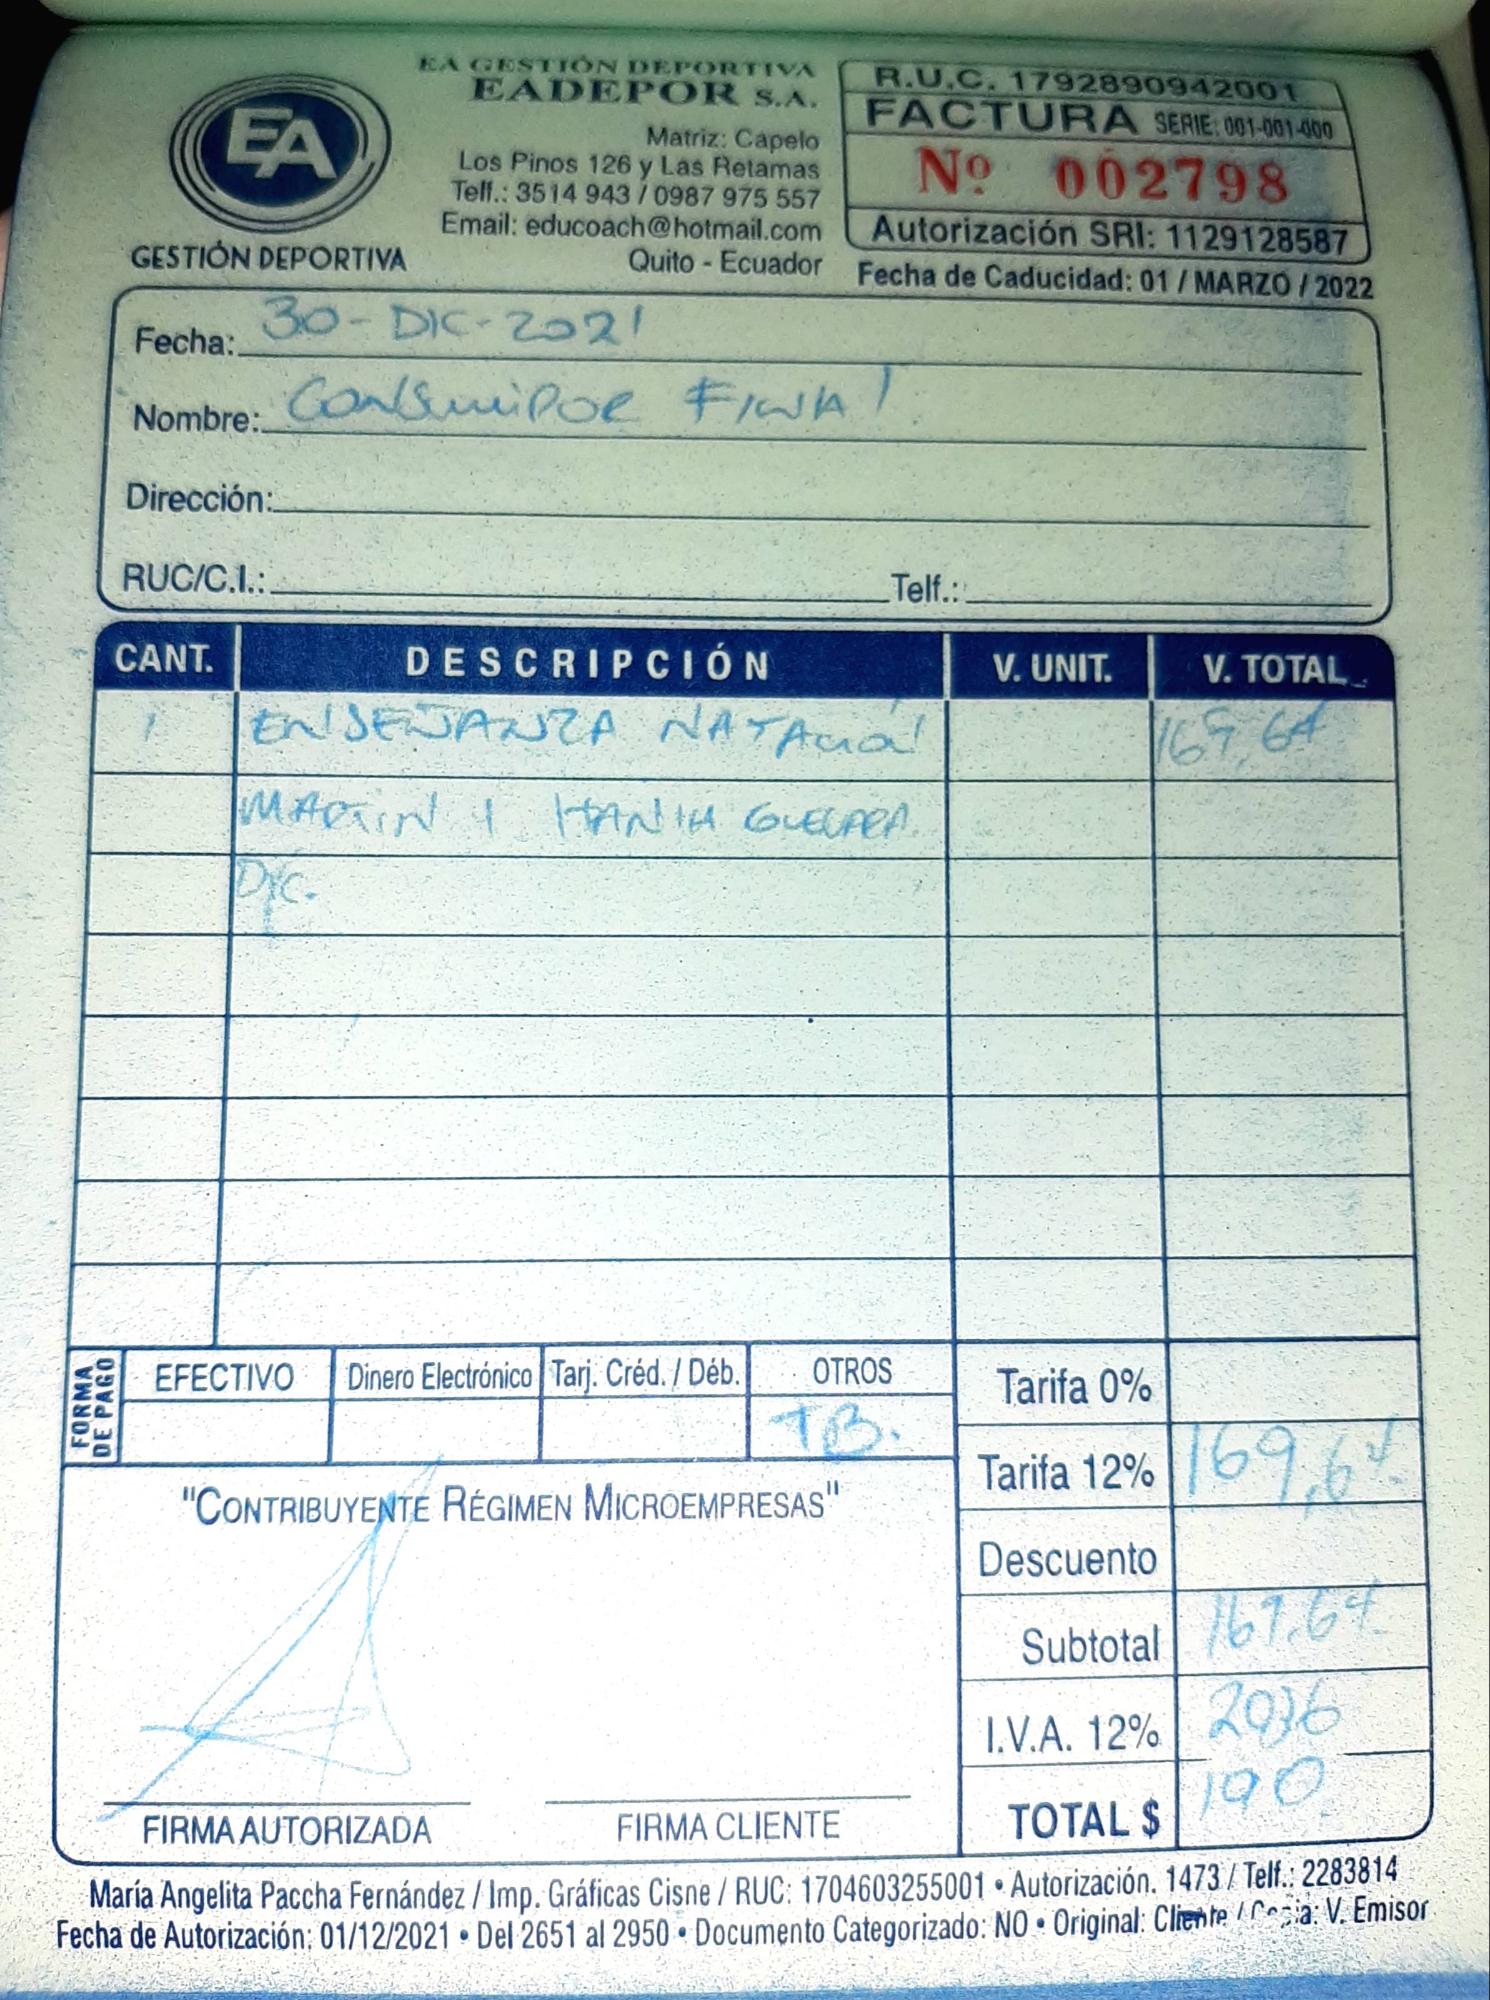 EA GESTIÓN DEPORTIVA
EADEPOR S.A.
EA
GESTIÓN DEPORTIVA
Matriz: Capelo
Los Pinos 126 y Las Retamas
Telf.: 3514 943 / 0987 975 557
Email: educoach@hotmail.com
Quito - Ecuador
R.U.C. 1792890942001
FACTURA SERIE: 001-001-000
Nº 002798
Autorización SRI: 1129128587
Fecha de Caducidad: 01 / MARZO / 2022
Fecha: 30-DIC-2021
Nombre: CONSUMIDOR FINAL
Dirección:
RUC/C.I.: Telf.:
CANT. DESCRIPCIÓN V. UNIT. V. TOTAL
1 ENSEÑANZA NATACIÓN 169,64
MARTIN Y GUEVARA
DIC.
FORMA DE PAGO
EFECTIVO Dinero Electrónico Tarj. Créd. / Déb. OTROS
TB.
Tarifa 0%
Tarifa 12% 169,64
Descuento
Subtotal 169,64
I.V.A. 12% 2036
TOTAL $ 190
"CONTRIBUYENTE RÉGIMEN MICROEMPRESAS"
FIRMA AUTORIZADA FIRMA CLIENTE
María Angelita Paccha Fernández / Imp. Gráficas Cisne / RUC: 1704603255001 • Autorización. 1473 / Telf.: 2283814
Fecha de Autorización: 01/12/2021 • Del 2651 al 2950 • Documento Categorizado: NO • Original: Cliente / Copia: V. Emisor